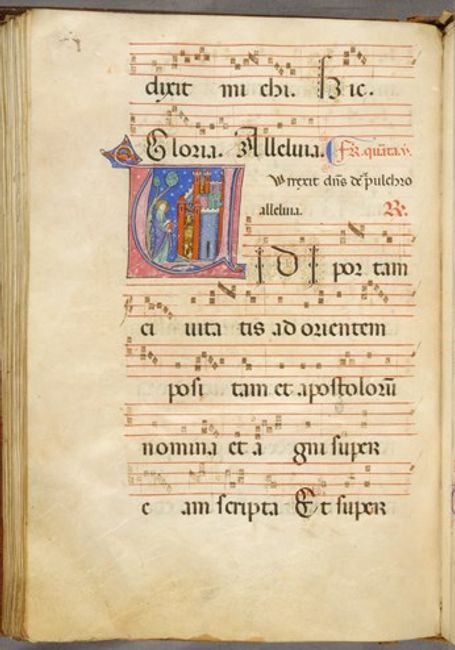 dixit mi chi. Hic.
Gloria. Alleluia. Fr. quīta. v.
Urrexit dn̄s de sepulchro
alleluia. R.
V I D I por tam
ci uita tis ad orientem
posi tam et apostoloꝝ
nomina et a gni super
e am scripta Et super